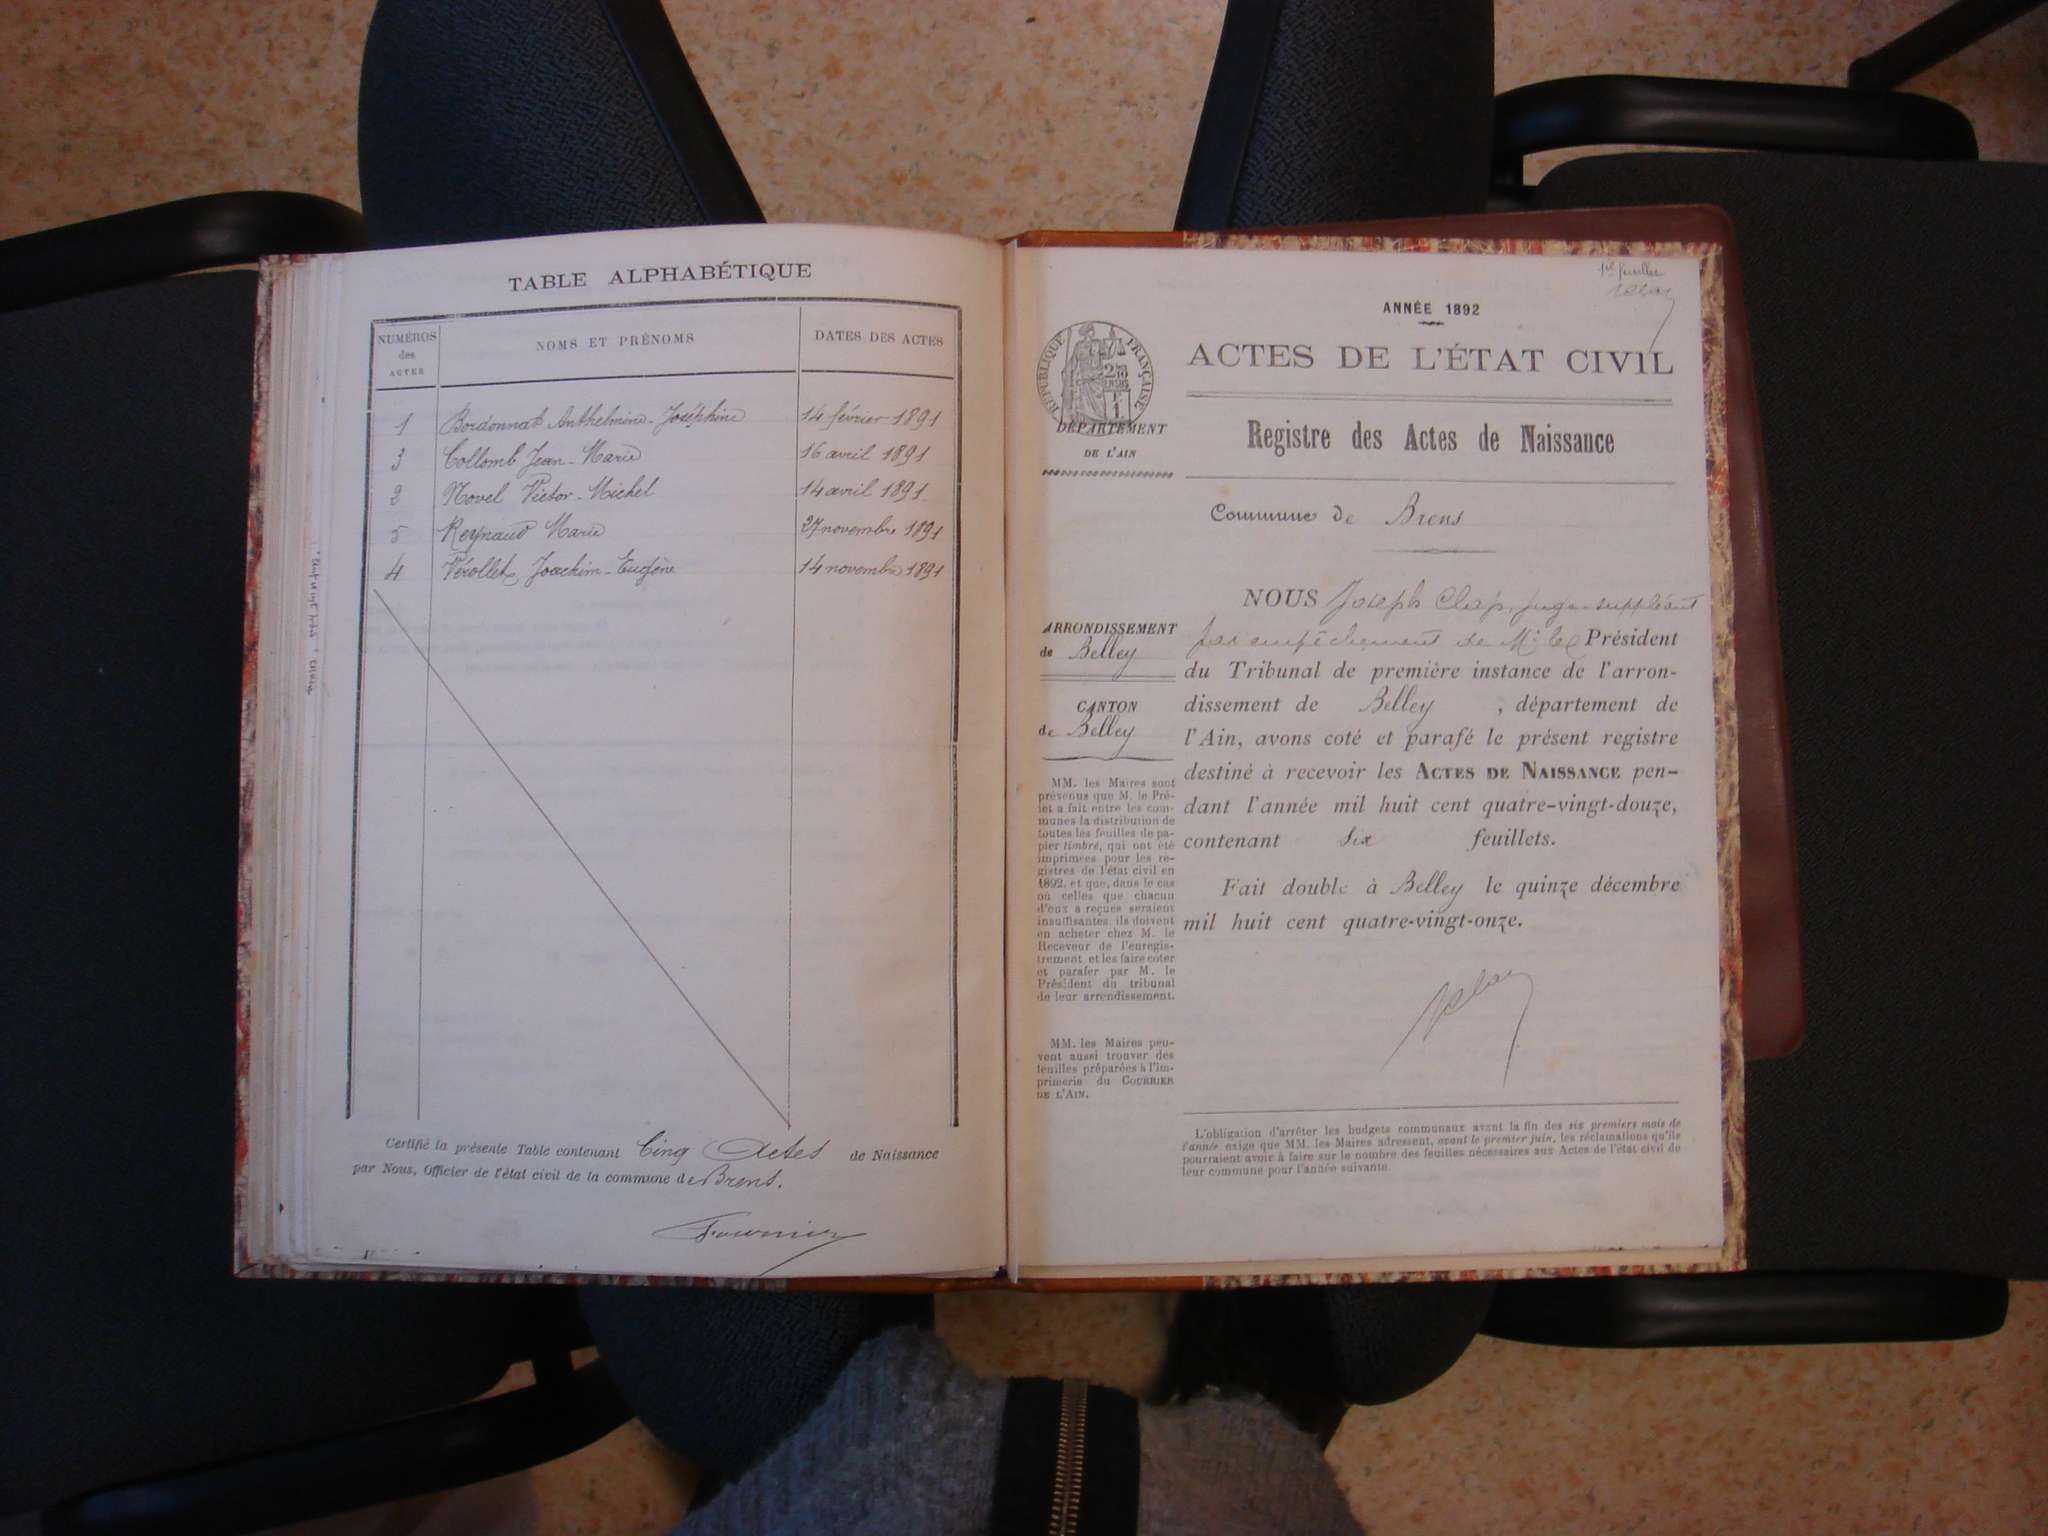 TABLE ALPHABÉTIQUE
NUMÉROS des ACTES NOMS ET PRÉNOMS DATES DES ACTES
1 Bordonnat Anthelmine-Joséphine 14 février 1891
3 Collomb Jean-Marie 16 avril 1891
2 Novel Victor-Michel 14 avril 1891
5 Reynaud Marie 27 novembre 1891
4 Vérollet, Joachim-Eugène 14 novembre 1891
Certifié la présente Table contenant Cinq Actes de Naissance
par Nous, Officier de l'état civil de la commune de Brens.
Fournier
1er feuillet
ANNÉE 1892
ACTES DE L'ÉTAT CIVIL
RÉPUBLIQUE FRANÇAISE
DÉPARTEMENT
DE L'AIN
Registre des Actes de Naissance
Commune de Brens
ARRONDISSEMENT
de Belley
CANTON
de Belley
MM. les Maires sont
prévenus que M. le Pré-
fet a fait entre les com-
munes la distribution de
toutes les feuilles de pa-
pier timbré, qui ont été
imprimées pour les re-
gistres de l'état civil en
1892. et que, dans le cas
où celles que chacun
d'eux a reçues seraient
insuffisantes, ils doivent
en acheter chez M. le
Receveur de l'enregis-
trement et les faire coter
et parafer par M. le
Président du tribunal
de leur arrondissement.
MM. les Maires peu-
vent aussi trouver des
feuilles préparées à l'im-
primerie du COURRIER
DE L'AIN.
NOUS Joseph Clap, juge-suppléant
par empêchement de Mr le Président
du Tribunal de première instance de l'arron-
dissement de Belley , département de
l'Ain, avons coté et parafé le présent registre
destiné à recevoir les ACTES DE NAISSANCE pen-
dant l'année mil huit cent quatre-vingt-douze,
contenant six feuillets.
Fait double à Belley le quinze décembre
mil huit cent quatre-vingt-onze.
L'obligation d'arrêter les budgets communaux avant la fin des six premiers mois de
l'année exige que MM. les Maires adressent, avant le premier juin, les réclamations qu'ils
pourraient avoir à faire sur le nombre des feuilles nécessaires aux Actes de l'état civil de
leur commune pour l'année suivante